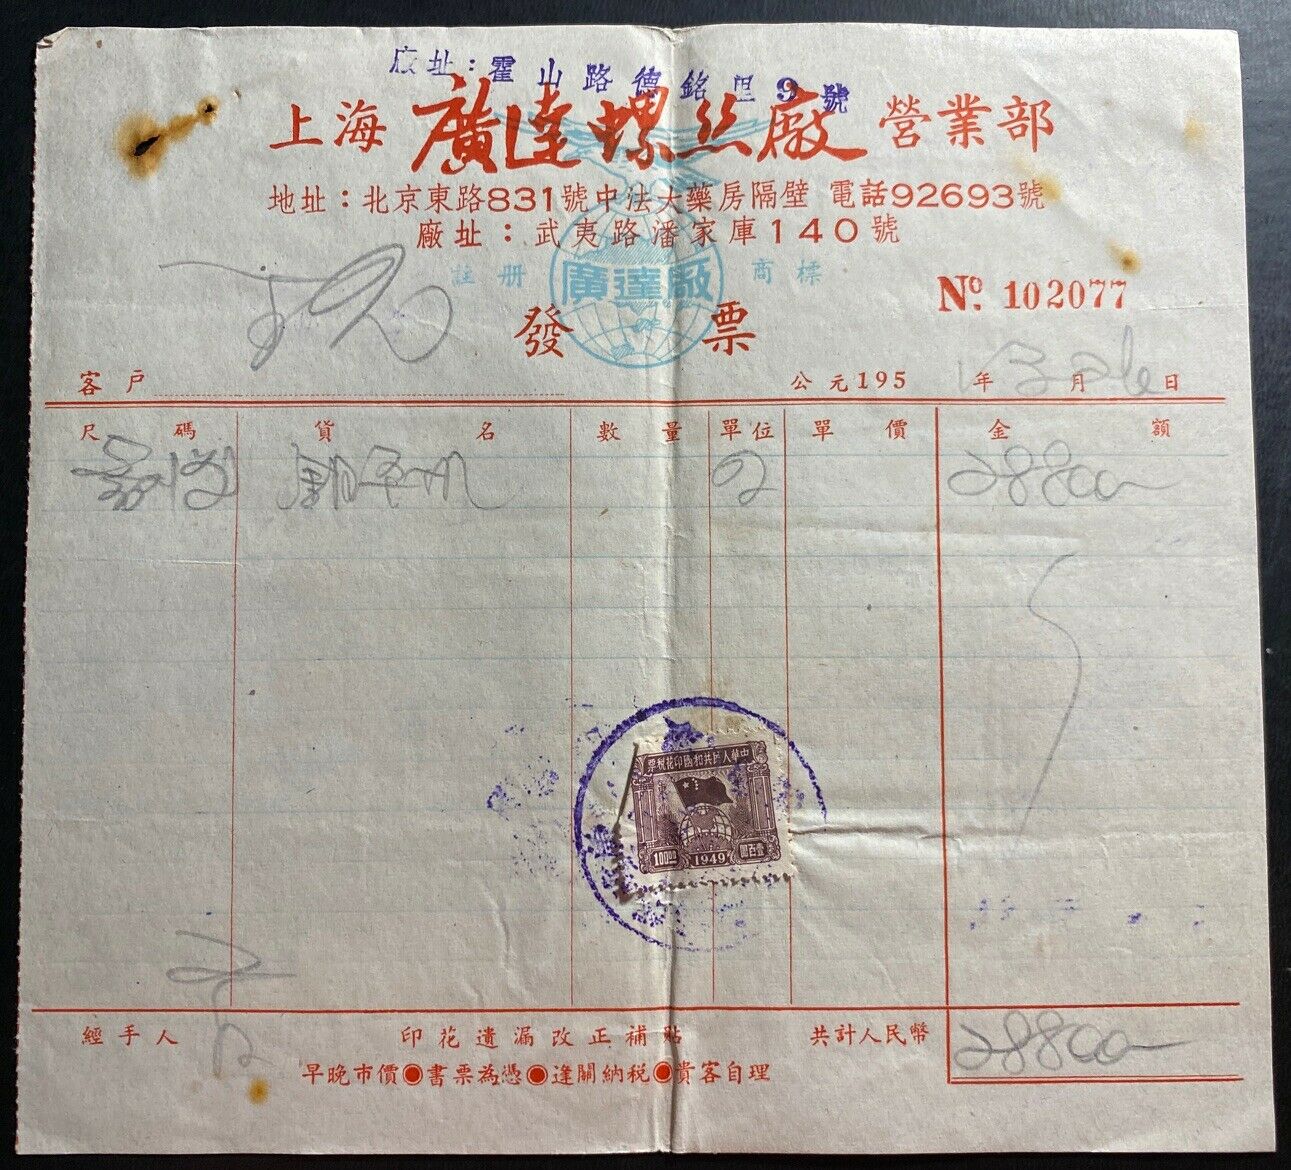 廠址：霍山路德銘里9號
上海廣達螺丝廠營業部
地址：北京東路831號中法大藥房隔壁 電話92693號
廠址：武夷路潘家庫140號
註册 廣達廠 商標
No. 102077
發票
客戶
公元195 年 月 日
尺碼 貨名 數量 單位 單價 金額
28800
中華人民共和國印花稅票
100.00 1949 壹百圓
經手人 印花遺漏改正補貼 共計人民幣 28800
早晚市價●書票為憑●逢關納稅●貴客自理